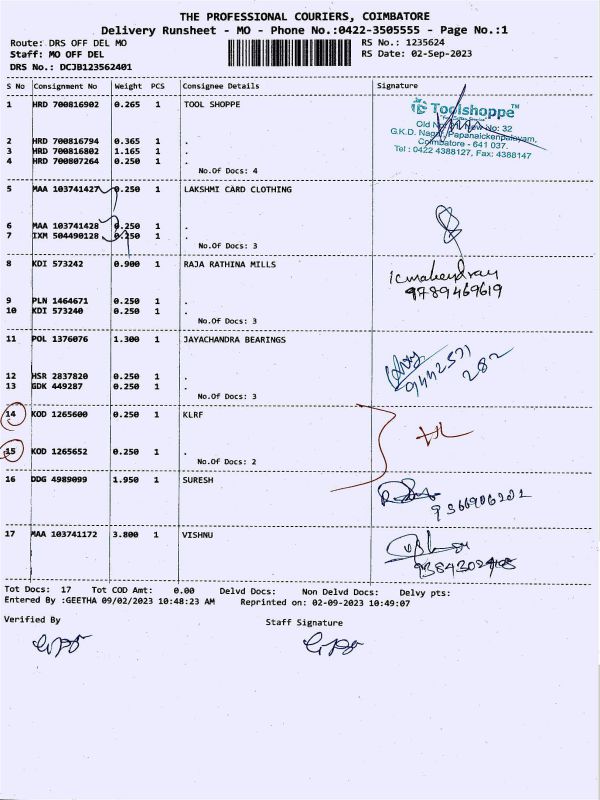 THE PROFESSIONAL COURIERS, COIMBATORE
Delivery Runsheet - MO - Phone No.:0422-3505555 - Page No.:1
Route: DRS OFF DEL MO RS No.: 1235624
Staff: MO OFF DEL RS Date: 02-Sep-2023
DRS No.: DCJB123562401
S No Consignment No Weight PCS Consignee Details Signature
1 HRD 700816902 0.265 1 TOOL SHOPPE
Toolshoppe™
Old No. New No: 32
G.K.D. Nagar, Papanaickenpalayam,
Coimbatore - 641 037.
Tel : 0422 4388127, Fax: 4388147
2 HRD 700816794 0.365 1 .
3 HRD 700816802 1.165 1 .
4 HRD 700807264 0.250 1 .
No.Of Docs: 4
5 MAA 103741427 0.250 1 LAKSHMI CARD CLOTHING
6 MAA 103741428 0.250 1 .
7 IXM 504490128 0.250 1 .
No.Of Docs: 3
8 KDI 573242 0.900 1 RAJA RATHINA MILLS
9789469619
9 PLN 1464671 0.250 1 .
10 KDI 573240 0.250 1 .
No.Of Docs: 3
11 POL 1376076 1.300 1 JAYACHANDRA BEARINGS
9442571
282
12 HSR 2837820 0.250 1 .
13 GDK 449287 0.250 1 .
No.Of Docs: 3
14 KOD 1265600 0.250 1 KLRF
15 KOD 1265652 0.250 1 .
No.Of Docs: 2
16 DDG 4989099 1.950 1 SURESH
17 MAA 103741172 3.800 1 VISHNU
Tot Docs: 17 Tot COD Amt: 0.00 Delvd Docs: Non Delvd Docs: Delvy pts:
Entered By :GEETHA 09/02/2023 10:48:23 AM Reprinted on: 02-09-2023 10:49:07
Verified By Staff Signature